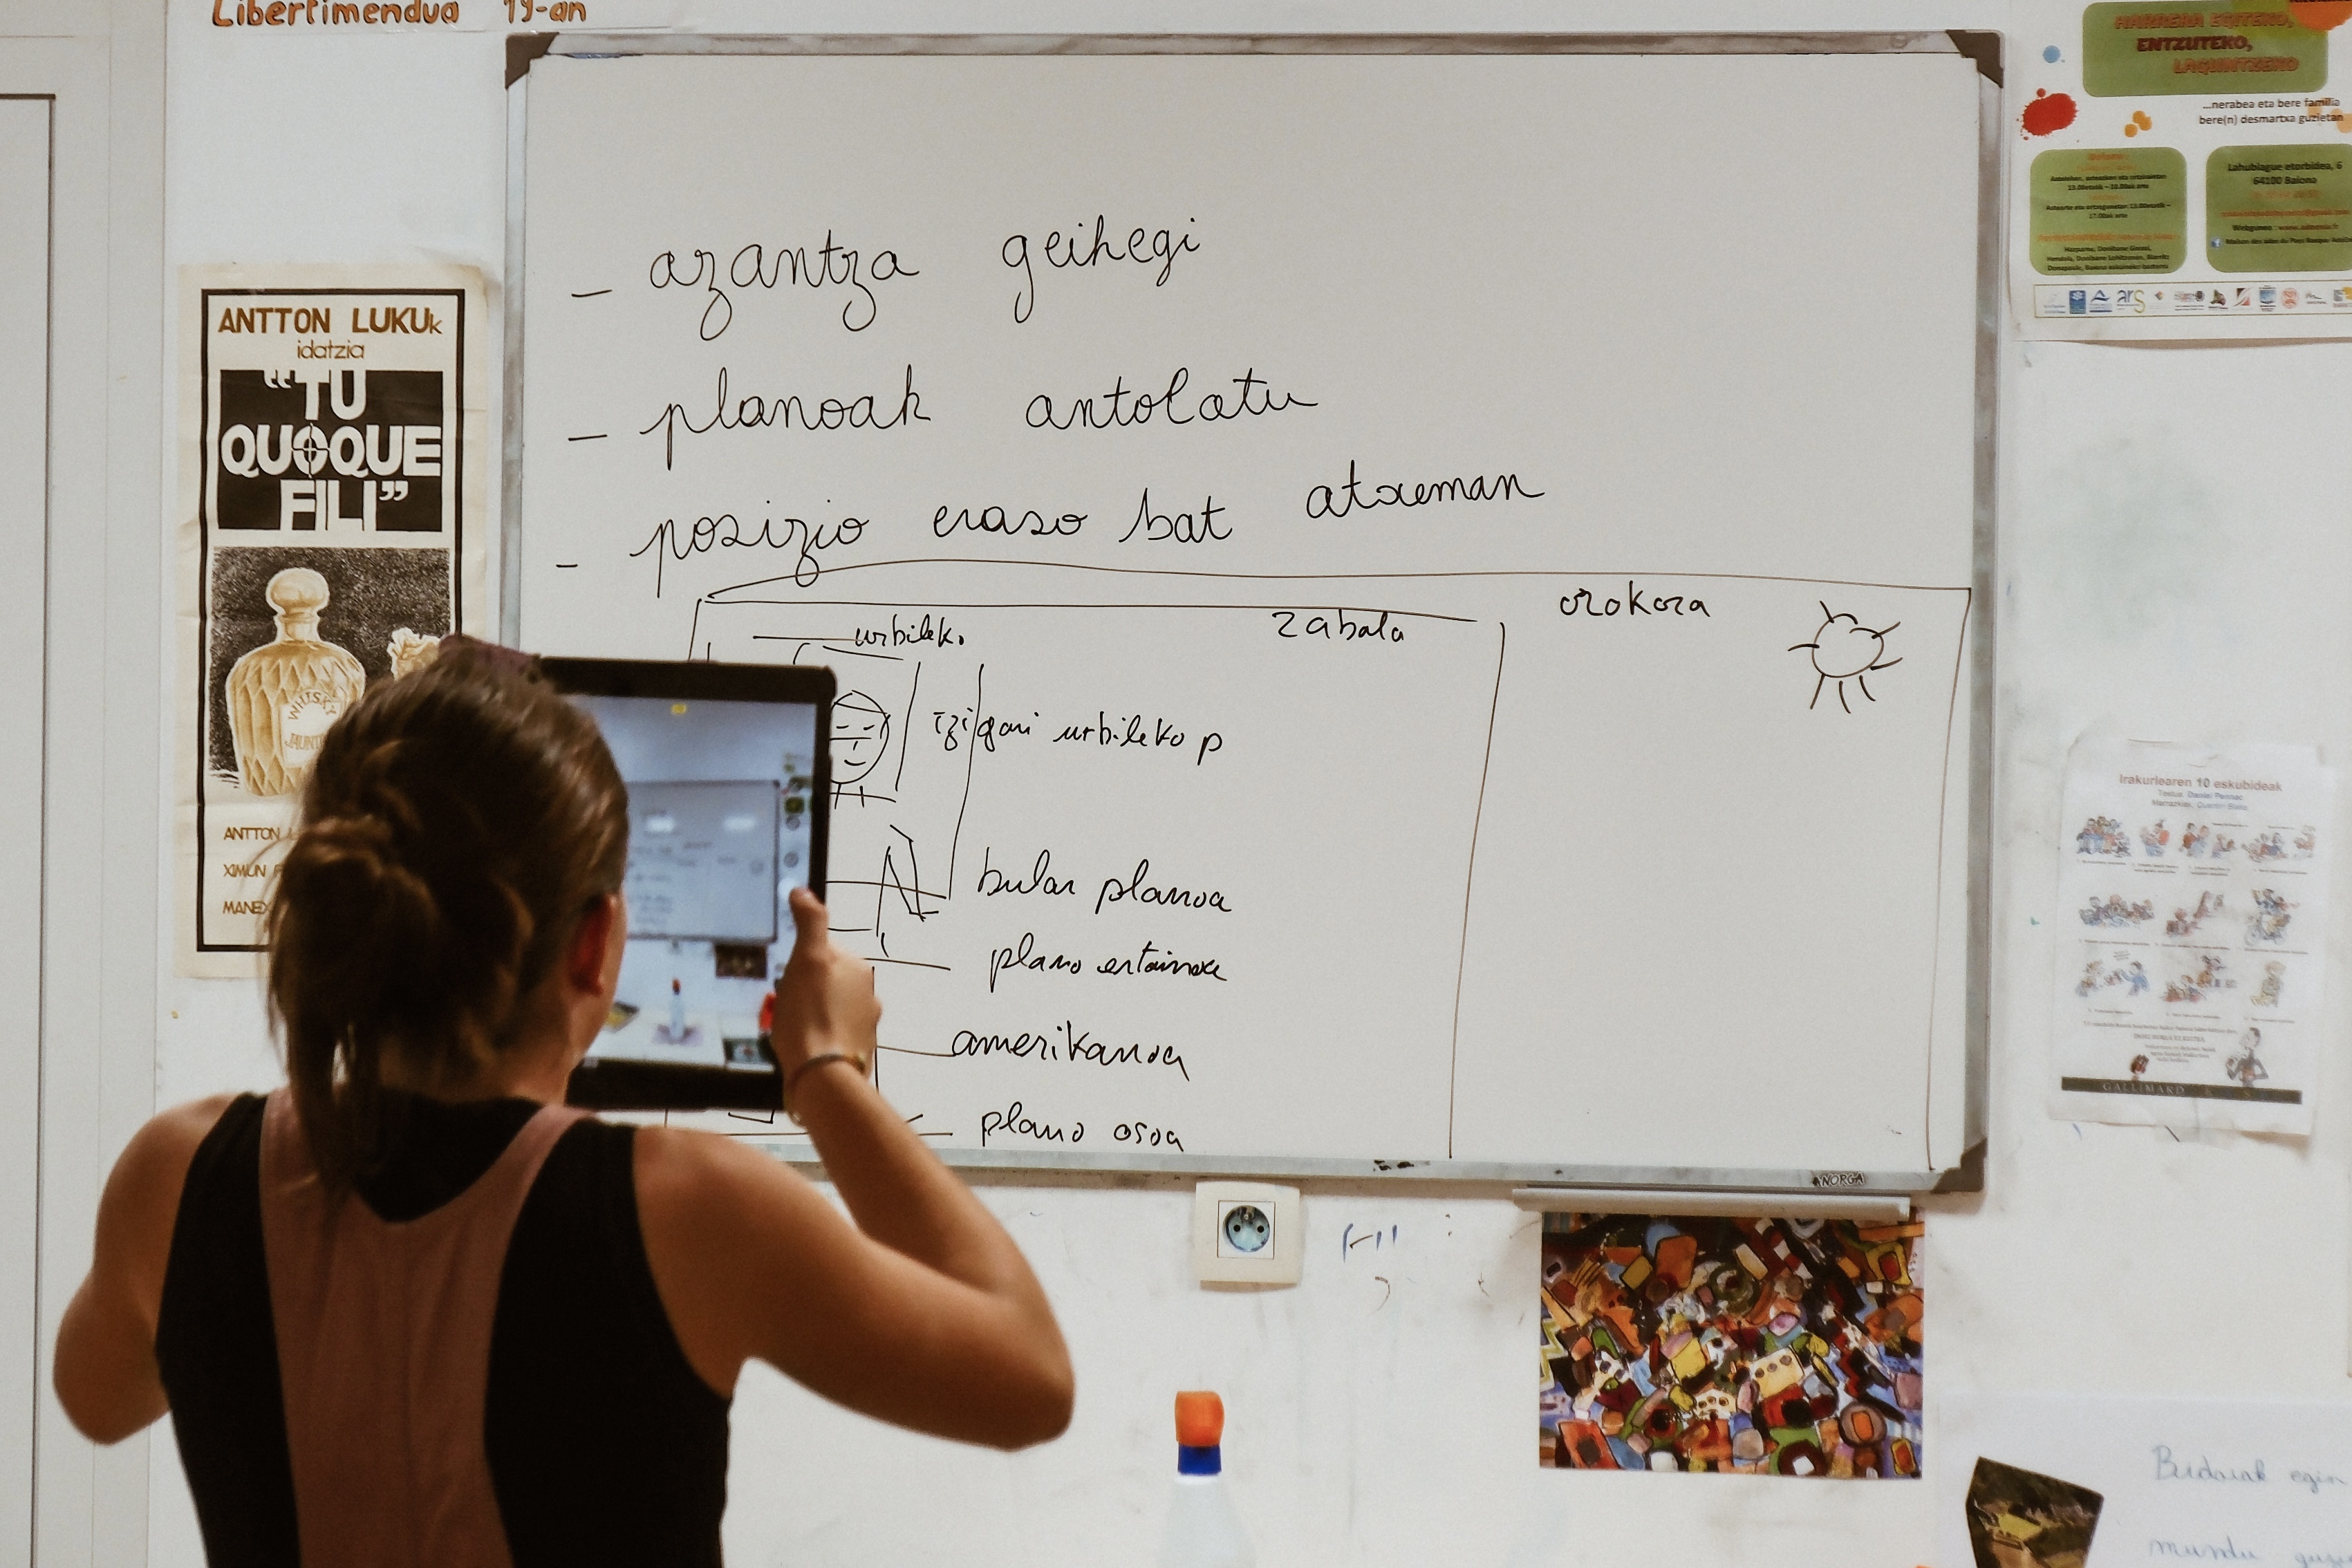 Libertimendua 19-an
ANTTON LUKUk
idatzia
"TU
QUOQUE
FILI"
WHISKY
ANTTON
XIMUN
MANEX
- azantza geihegi
- planoak antolatu
- posizio eraso bat atxeman
urbileko
zabala
orokora
izigari urbileko p
bular planoa
plano ertainoa
amerikanoa
plano osoa
ANORGA
HARRERA EGITEKO,
ENTZUTEKO,
LAGUNTZEKO
...nerabea eta bere familia
bere(n) desmartxa guzietan
Lahubiague etorbidea, 6
64100 Baiona
ars
Irakurlearen 10 eskubideak
Testua: Daniel Pennac
Marrazkiak: Quentin Blake
GALLIMARD
Bidaiak egin
mundu